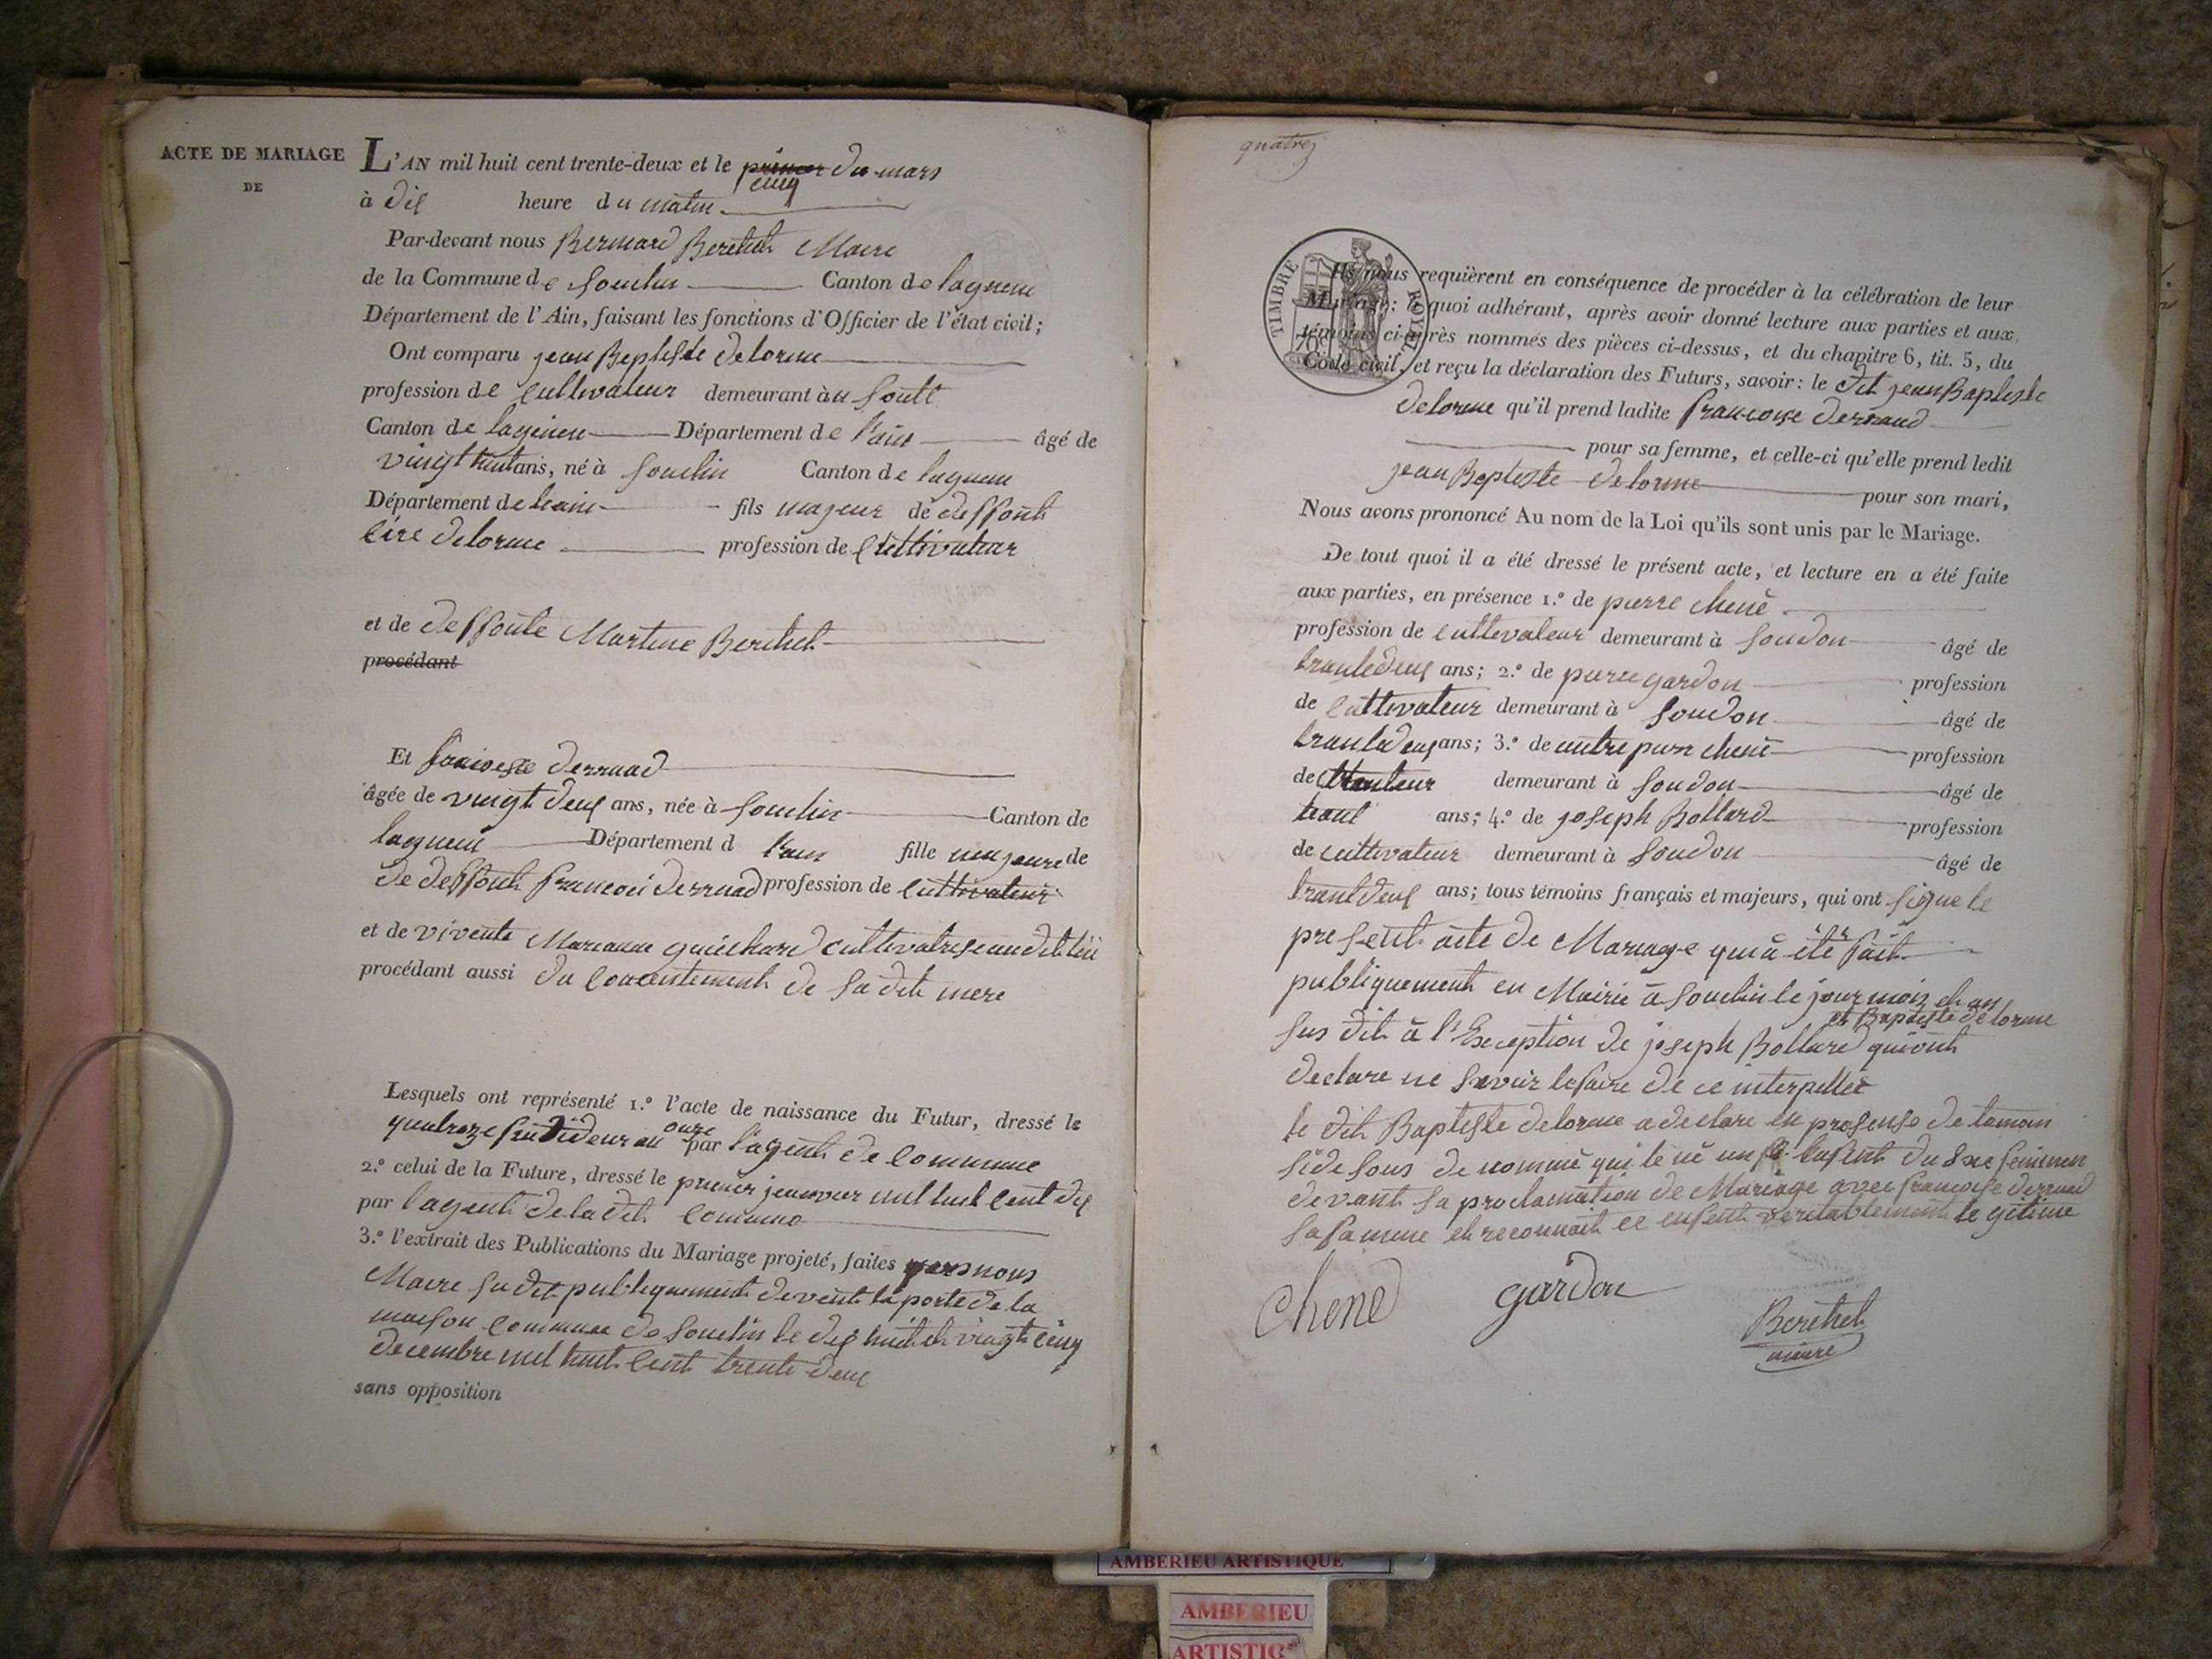 ACTE DE MARIAGE
DE
L'AN mil huit cent trente-deux et le premier du mars
cinq
à dix heure du matin
Par-devant nous Bernard Berthet Maire
de la Commune de Souclin Canton de lagneu
Département de l'Ain, faisant les fonctions d'Officier de l'état civil;
Ont comparu jean Beptiste delorme
profession de Cultivateur demeurant àu
Canton de lagneu Département de l'ain âgé de
vingt huit ans, né à Souclin Canton de lagneu
Département de lain fils majeur de deffont
Cire delorme profession de Cultivateur
et de deffonte Martine Berthet
procédant
Et francoise derruad
âgée de vingt deux ans, née à Souclin Canton de
lagneu Département d l'ain fille majeure de
de deffont francoi derruad profession de Cultivateur
et de vivente Marianne guichard cultivatrise au dit lui
procédant aussi du concentement de sa dite mere
Lesquels ont représenté 1.º l'acte de naissance du Futur, dressé le
quatroze an onze par l'agent de Commune
2.º celui de la Future, dressé le premier jeanvier mil huit Cent dix
par l'agent de la dite Commune
3.º l'extrait des Publications du Mariage projeté, faites par nous
Maire su dit publiquement devent la porte de la
maison Commune de Souclin le dix huit et vingt Cinq
decembre mil huit Cent trente deux
sans opposition
quatre
TIMBRE ROYAL
70c
Ils nous requièrent en conséquence de procéder à la célébration de leur
Mariage: à quoi adhérant, après avoir donné lecture aux parties et aux
témoins ci-après nommés des pièces ci-dessus, et du chapitre 6, tit. 5, du
Code civil, et reçu la déclaration des Futurs, savoir: le dit jean Baptiste
delorme qu'il prend ladite francoise derruad
pour sa femme, et celle-ci qu'elle prend ledit
jean Beptiste delorme pour son mari,
Nous avons prononcé Au nom de la Loi qu'ils sont unis par le Mariage.
De tout quoi il a été dressé le présent acte, et lecture en a été faite
aux parties, en présence 1.º de pierre chené
profession de Cultivateur demeurant à Soudon âgé de
trantedeux ans; 2.º de pierre gardon profession
de Cultivateur demeurant à Soudon âgé de
trantedeux ans; 3.º de autre pierre chené profession
de demeurant à Soudon âgé de
trant ans; 4.º de joseph Bollard profession
de cultivateur demeurant à Soudon âgé de
trantdeux ans; tous témoins français et majeurs, qui ont signe le
present acte de Mariage qui à été fait
publiquement en Mairie à Souclin le jour mois et an
et Baptiste delorme
sus dit à l'Exception de joseph Bollard qui ont
declare ne savoir le faire de ce interpellee
le dit Baptiste delorme a declare en presense de tamoin
si de sous de nommé qui le né un enfent du sxe feminen
devant sa proclamation de Mariage avec francoise derruad
sa famme et reconnait ce enfent veritablement le gitime
Chene gardon Berthet
maire
AMBERIEU ARTISTIQUE
AMBERIEU
ARTISTIQ